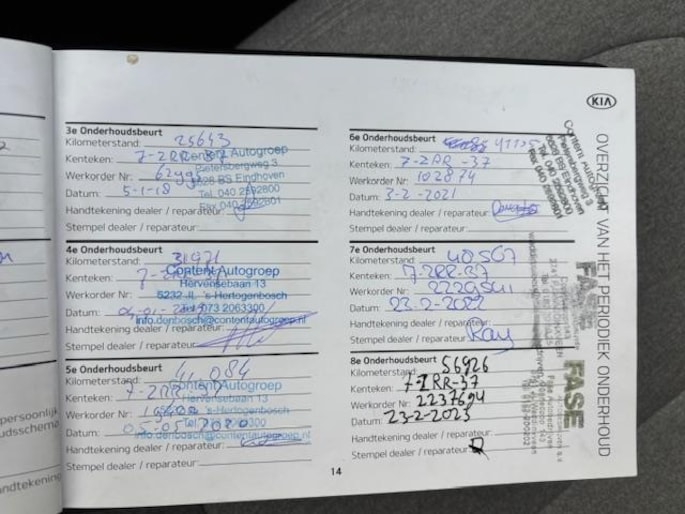 KIA
OVERZICHT VAN HET PERIODIEK ONDERHOUD
3e Onderhoudsbeurt
Kilometerstand: 25643
Kenteken: 7-ZRR-37
Werkorder Nr:
Datum: 5-1-18
Handtekening dealer / reparateur:
Stempel dealer / reparateur:
Content Autogroep
Pietersbergweg 3
5628 BS Eindhoven
Tel. 040 2592800
Fax 040 2592801
4e Onderhoudsbeurt
Kilometerstand: 31971
Kenteken: 7-ZRR-37
Werkorder Nr:
Datum:
Handtekening dealer / reparateur:
Stempel dealer / reparateur:
Content Autogroep
Hervensebaan 13
5232 JL 's-Hertogenbosch
Tel 073 2063300
info.denbosch@contentautogroep.nl
5e Onderhoudsbeurt
Kilometerstand: 41.084
Kenteken: 7-ZRR
Werkorder Nr:
Datum: 05-05-2020
Handtekening dealer / reparateur:
Stempel dealer / reparateur:
Content Autogroep
Hervensebaan 13
's-Hertogenbosch
info.denbosch@contentautogroep.nl
6e Onderhoudsbeurt
Kilometerstand:
Kenteken: 7-ZRR-37
Werkorder Nr: 102874
Datum: 3-2-2021
Handtekening dealer / reparateur:
Stempel dealer / reparateur:
Content Autogroep
Pietersbergweg 3
5628 BS Eindhoven
Tel. 040 2592800
7e Onderhoudsbeurt
Kilometerstand: 48567
Kenteken: 7-ZRR-37
Werkorder Nr:
Datum: 23-2-2022
Handtekening dealer / reparateur:
Stempel dealer / reparateur: Kay
FASE
8e Onderhoudsbeurt
Kilometerstand: 56926
Kenteken: 7-ZRR-37
Werkorder Nr: 2237694
Datum: 23-2-2023
Handtekening dealer / reparateur:
Stempel dealer / reparateur:
FASE
14
persoonlijk
udsschema
ndtekening